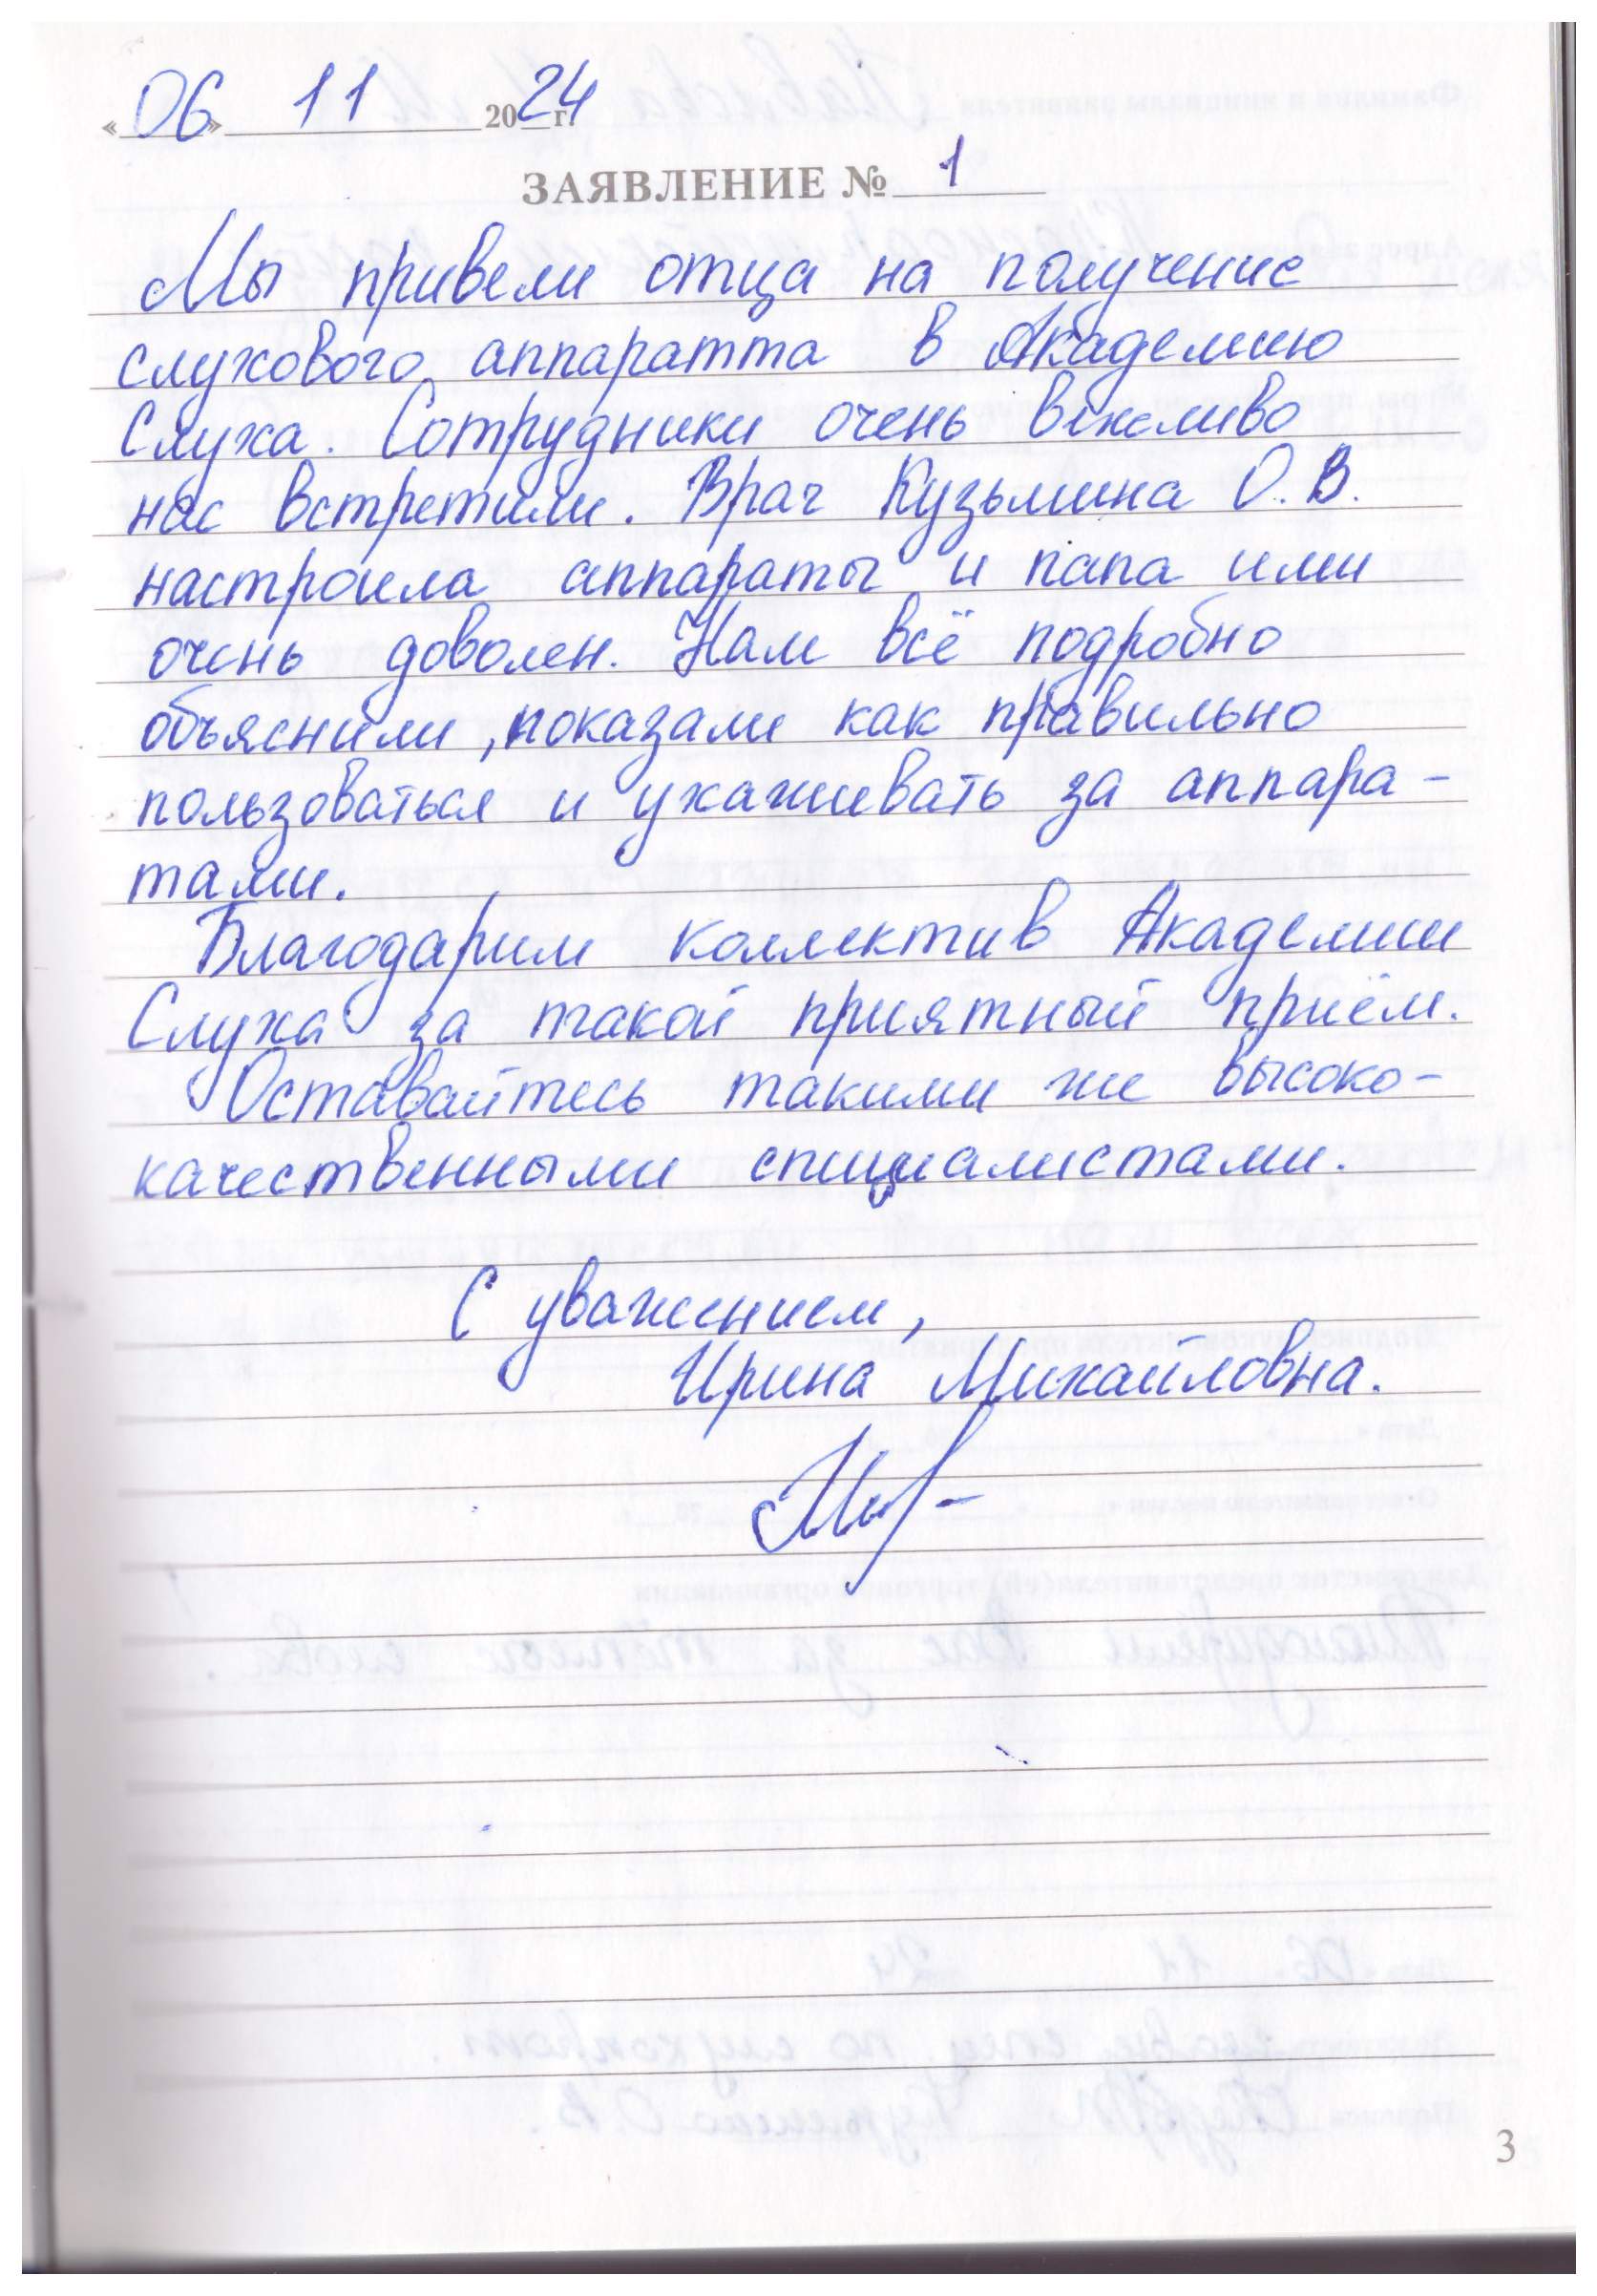 «06» 11 2024 г.
ЗАЯВЛЕНИЕ № 1
Мы привели отца на получение
слухового аппаратта в Академию
Слуха. Сотрудники очень вежливо
нас встретили. Врач Кузьмина О.В.
настроила аппараты и папа ими
очень доволен. Нам всё подробно
объяснили, показали как правильно
пользоваться и ухаживать за аппара-
тами.
Благодарим коллектив Академии
Слуха за такой приятный приём.
Оставайтесь такими же высоко-
качественными специалистами.
С уважением,
Ирина Михайловна.
3